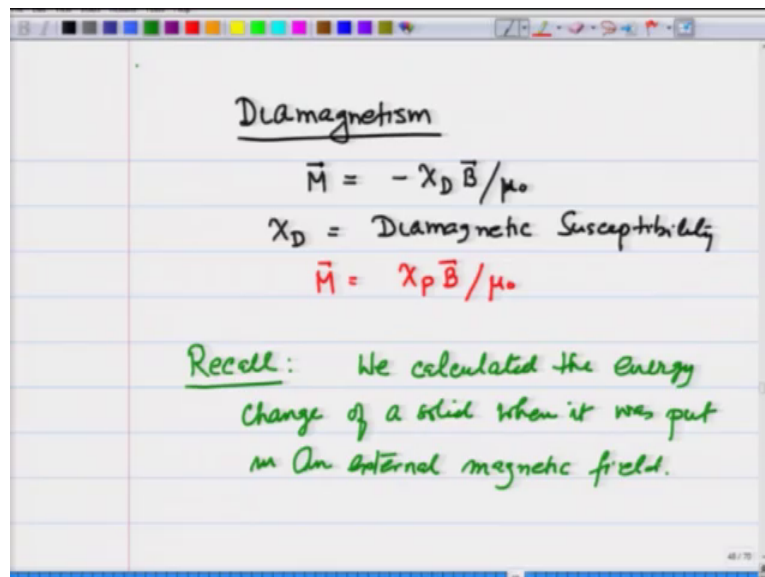 Diamagnetism
M⃗ = - χ_D B⃗/μ₀
χ_D = Diamagnetic Susceptibility
M⃗ = χ_P B⃗/μ₀
Recall: We calculated the energy
change of a solid when it was put
in an external magnetic field.
48/70